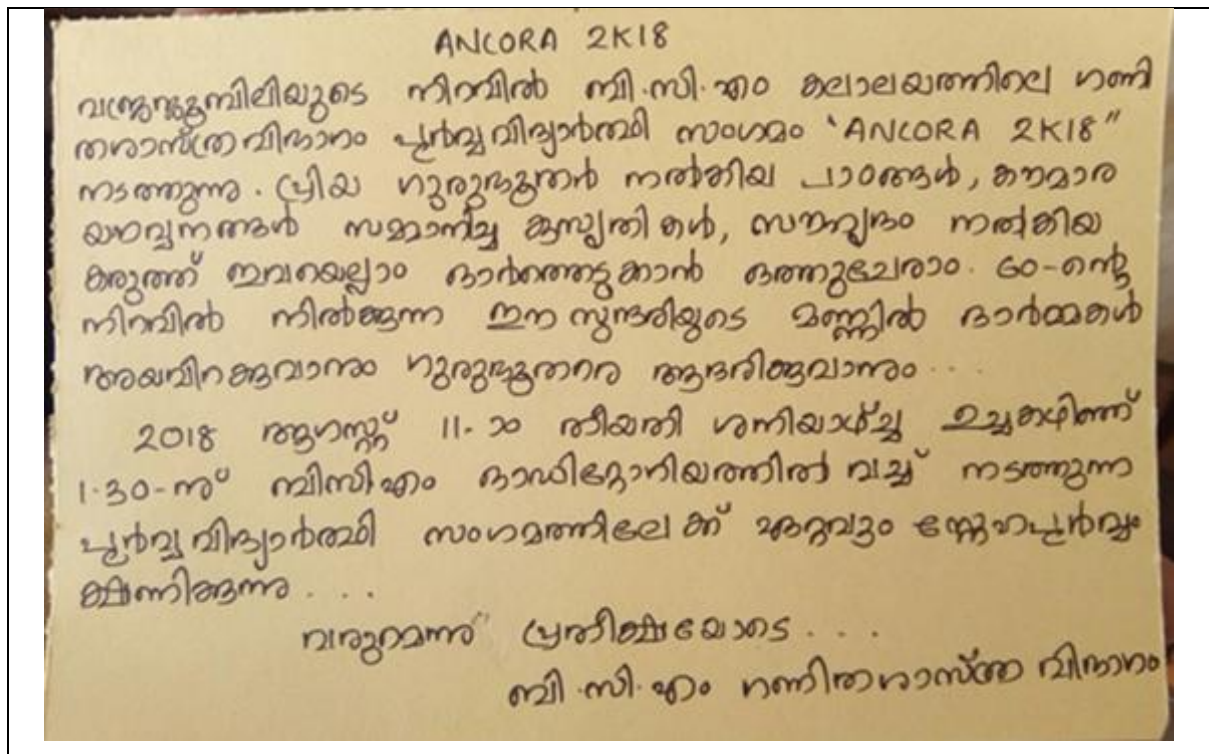 ANCORA 2K18
നിറവിൽ ബി.സി.എം കലാലയത്തിലെ ഗണി
തശാസ്ത്രവിഭാഗം പൂർവ്വവിദ്യാർത്ഥി സംഗമം 'ANCORA 2K18"
നടത്തുന്നു. പ്രിയ ഗുരുഭൂതർ നൽകിയ പാഠങ്ങൾ, കൗമാര
യൗവ്വനങ്ങൾ സമ്മാനിച്ച കുസൃതികൾ, സൗഹൃദം നൽകിയ
കരുത്ത് ഇവയെല്ലാം ഓർത്തെടുക്കാൻ ഒത്തുചേരാം. 60-ന്റെ
നിറവിൽ നിൽക്കുന്ന ഈ സുന്ദരിയുടെ മണ്ണിൽ ഓർമ്മകൾ
അയവിറക്കുവാനും ഗുരുഭൂതരെ ആദരിക്കുവാനും ...
2018 ആഗസ്റ്റ് 11-ാം തീയതി ശനിയാഴ്ച്ച ഉച്ചകഴിഞ്ഞ്
1.30-ന് ബിസിഎം ഓഡിറ്റോറിയത്തിൽ വച്ച് നടത്തുന്ന
പൂർവ്വവിദ്യാർത്ഥി സംഗമത്തിലേക്ക് ഏറ്റവും സ്നേഹപൂർവ്വം
ക്ഷണിക്കുന്നു ...
വരുമെന്ന് പ്രതീക്ഷയോടെ ...
ബി.സി.എം ഗണിതശാസ്ത്ര വിഭാഗം